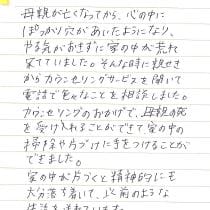 母親が亡くなってから、心の中に
ぽっかり穴があいたようになり、
やる気がおきずに家の中が荒れ
果てていました。そんな時に親せき
からカウンセリングサービスを聞いて
電話で色々なことを相談しました。
カウンセリングのおかげで、母親の死
を受け入れることができて家の中の
掃除や片づけに手をつけることが
できました。
家の中が片づくと精神的にも
大分落ち着いて、以前のような
生活を送れています。